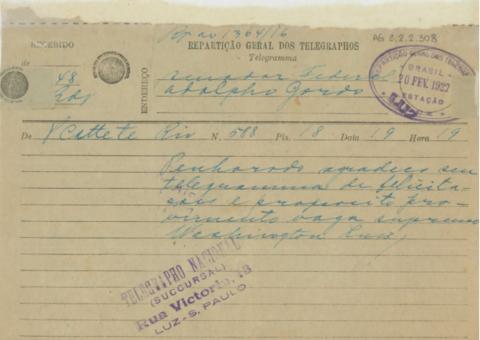 Rp. no 1364/16
AG 2.2.2.308
RECEBIDO
REPARTIÇÃO GERAL DOS TELEGRAPHOS
Telegramma
de
48
ENDEREÇO
Senador Federal
Adolpho Gordo
REPARTIÇÃO GERAL DOS TELEGR
BRASIL
20 FEV. 1927
ESTAÇÃO
LUZ
De Cattete Rio N. 588 Pls. 18 Data 19 Hora 19
Penhorado agradeço seu
telegramma de felicita-
ções e proposito pro-
vimento vaga supremo
Washington Luis
TELEGRAPHO NACIONAL
(SUCCURSAL)
Rua Victoria, 18
LUZ-S. PAULO